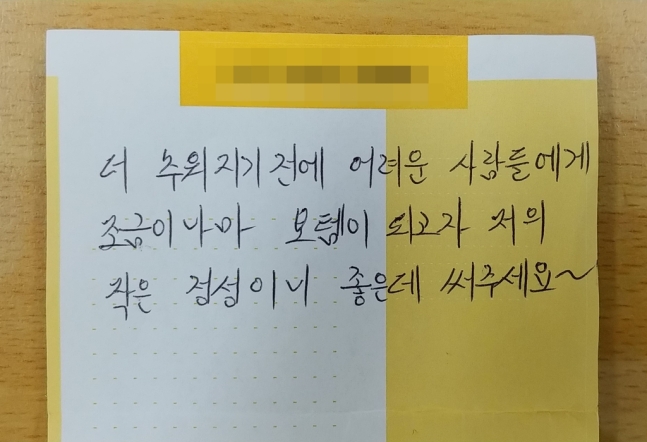 더 추워지기전에 어려운 사람들에게
조금이나마 보템이 되고자 저의
작은 정성이니 좋은데 써주세요~